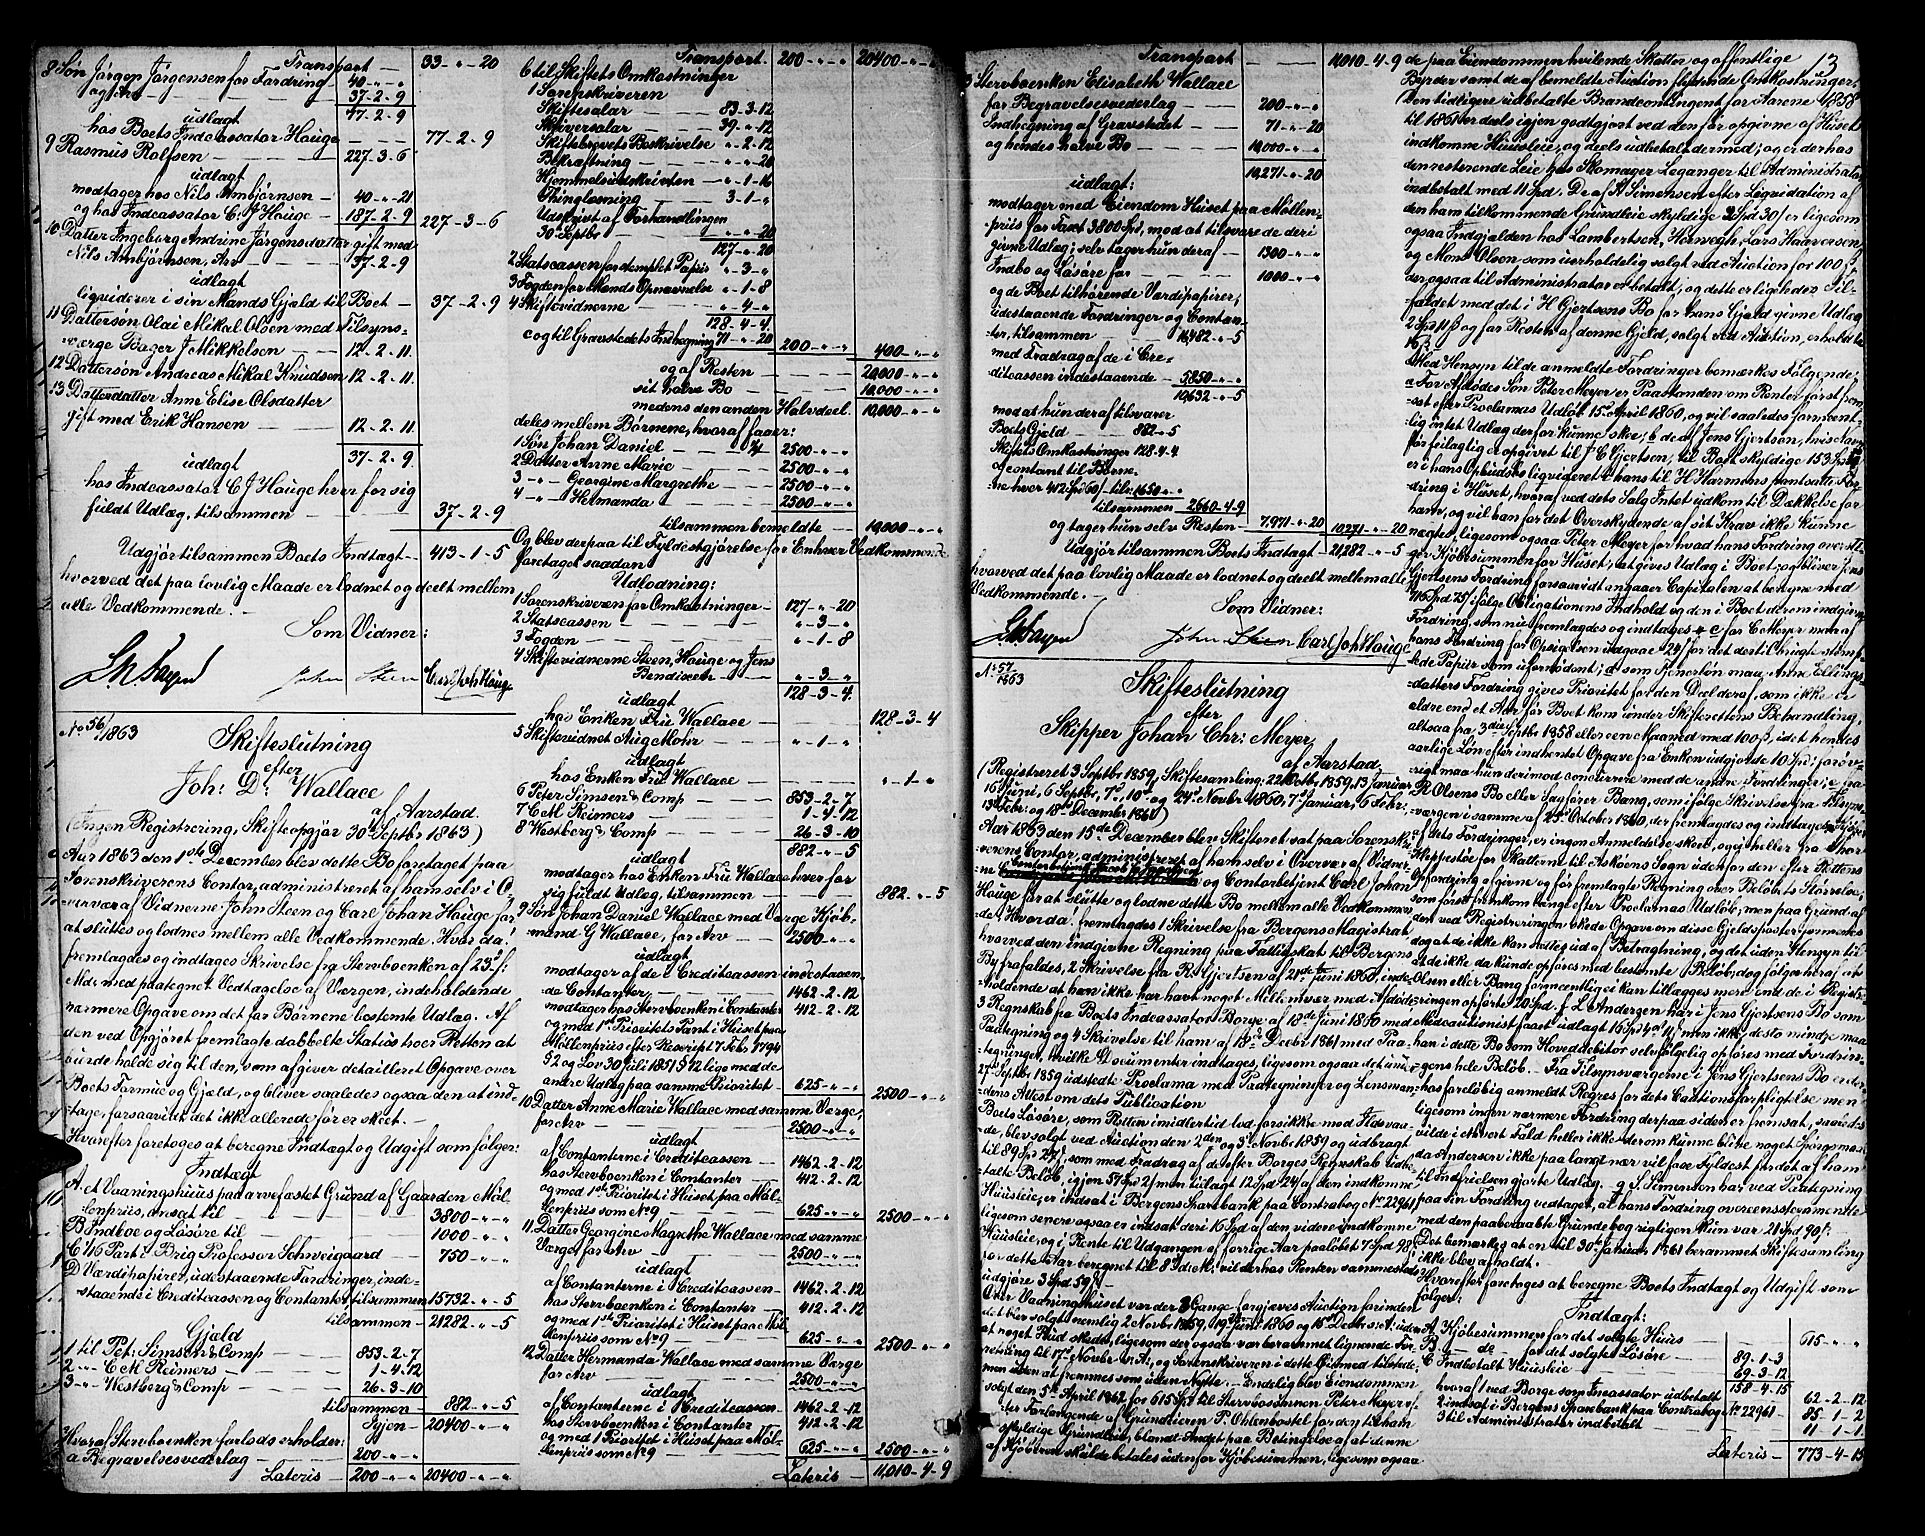 Transport — 33 - " - 20
8 Søn Jørgen Jørgensen for Fordring — 40 - " - "
og Arv — 37-2-9
udlagt 77-2-9
hos Boets Indcassator Hauge — 77-2-9
9 Rasmus Rolfsen — 227-3-6
udlagt
modtager hos Nils Ambjørnsen — 40-"-21
og hos Indcassator C. J Hauge — 187-2-9 227-3-6
10 Datter Ingeborg Andrine Jørgensdatter gift med
Nils Ambjørnsen, Arv — 37-2-9
udlagt
liqviderer i sin Mands Gjæld til Boet — 37-2-9
11 Dattersøn Olai Mikal Olsen med Tilsyns-
værge Bager J Mikkelsen — 12-2-11
12 Dattersøn Andreas Mikal Knudsen 12-2-11
13 Datterdatter Anne Elise Olsdatter
gift med Erik Hansen — 12-2-11
37-2-9
udlagt
hos Indcassator C J Hauge hver for sig
fuldt Udlæg, tilsammen — 37-2-9
Udgjør tilsammen Boets Indtægt — 413-1-5
hvorved det paa lovlig Maade er lodnet og deelt mellem
alle Vedkommende. —
Som Vidner:
John Steen Carl Joh Hauge
No 56/1863
Skifteslutning
efter
Joh: D. Wallace
af Aarstad.
(Ingen Registrering, Skifteopgjør 30 Septbr 1863)
Aar 1863 den 1ste December blev dette Bo foretaget paa
Sorenskriverens Contor, administreret af ham selv i O-
vervær af Vidnerne John Steen og Carl Johan Hauge for
at sluttes og lodnes mellem alle Vedkommende. Hvor da:
fremlagdes og indtages Skrivelse fra Stervboenken af 23de f:
Md. med paategnet Vedtagelse af Værgen, indeholdende
nærmere Opgave om det for Børnene bestemte Udlæg. Af
den ved Opgjøret fremlagte dobbelte Status troer Retten at
burde holde sig til den, som afgiver detailleret Opgave over
Boets Formue og Gjæld, og bliver saaledes ogsaa den at ind-
tage, forsaavidt det ikke allerede før er skeet. —
Hvorefter foretoges at beregne Indtægt og Udgift som følger:
Indtægt
A. et Vaaningshuus paa arvefæstet Grund af Gaarden Møl-
lenpriis, ansat til — 3800-"-"
B Indboe og Løsøre til — 1000-"-"
C 1/16 Part i Brig Professor Schweigaard — 750-"-"
D Værdipapirer, udestaaende Fordringer, inde-
staaende i Creditcassen og Contanter, tilsammen 15732-"-5
tilsammen — 21282-"-5
Gjæld
1 til Pet: Simsen & Comp — 853-2-7
2 "- C M Reimers — 1-4-12
3 "- Westberg & Comp — 26-3-10
tilsammen — 882-"-5
Igjen — 20400-"-"
Hvoraf Stervboenken forlods erholder:
a Begravelsesvederlag — 200-"-"
Lateris — 200-"-" 20400-"-"
Transport — 200-"-" 20400-"-"
b til Skiftets Omkostninger
1 Sorenskriveren
Skiftesalær — 83-3-12
Skriversalær — 39-"-12
Skiftebrevets Beskrivelse "-2-12
Bekræftning — "-"-20
Hjemmelsudskriften — "-1-16
Thinglæsning — 3-1-"
Udskrivt af Forhandlingen
30 Septbr — "-"-20
127-"-20
2 Statscassen for stemplet Papiir "-3-"
3 Fogden for Mænds Opnævnelse "-1-8
4 Skiftevidnerne — "-4-"
128-4-4
c og til Gravstedets Indhegning 71-"-20 200-"-" 400-"-"
og af Resten — 20,000-"-"
sit halve Bo — 10,000-"-"
medens den anden Halvdeel 10,000-"-"
deles mellem Børnene, hvoraf faaer:
1 Søn Johan Daniel — 2500-"-"
2 Datter Anne Marie — 2500-"-"
3 -"- Georgine Margrethe — 2500-"-"
4 -"- Hermanda — 2500-"-"
tilsammen bemeldte — 10,000-"-"
Og blev derpaa til Fyldestgjørelse for Enhver Vedkommende
foretaget saadan
Udlodning:
1 Sorenskriveren for Omkostninger — 127-"-20
2 Statscassen — "-3-"
3 Fogden — "-1-8
4 Skiftevidnerne Steen, Hauge og Jens
Bendixen — "-3-"
128-3-4
udlagt
hos Enken Fru Wallace — 128-3-4
5 Skiftevidnet Aug Mohr — "-1-"
udlagt
hos Enken Fru Wallace — "-1-"
6 Peter Simsen & Comp — 853-2-7
7 C M Reimers — 1-4-12
8 Westberg & Comp — 26-3-10
882-"-5
udlagt
modtager hos Enken Fru Wallace hver for
sig fuldt Udlæg, tilsammen — 882-"-5
9 Søn Johan Daniel Wallace med Værge Kjøb-
mand G Wallace, for Arv — 2500-"-"
udlagt
modtager af de i Creditcassen indestaaen-
de Contanter — 1462-2-12
modtager hos Stervboenken i Contanter 412-2-12
og med 1ste Prioritets Pant i Huset paa
Møllenpriis efter Rescript 7 Febr. 1794
§2 og Lov 30 Juli 1851 §12 lige med de
andre Udlæg paa samme Prioritet — 625-"-" 2500-"-"
10 Datter Anne Marie Wallace med samme Værge,
for Arv — 2500-"-"
udlagt
af Contanterne i Creditcassen — 1462-2-12
hos Stervboenken i Contanter — 412-2-12
og med 1ste Prioritet i Huset paa Møl-
lenpriis som No 9 — 625-"-" 2500-"-"
11 Datter Georgine Magrethe Wallace med samme
Værge for Arv — 2500-"-"
udlagt
af Contanterne i Creditcassen — 1462-2-12
hos Stervboenken i Contanter — 412-2-12
og med 1ste Prioritet i Huset paa Møl-
lenpriis som No 9 — 625-"-" 2500-"-"
12 Datter Hermanda Wallace med samme Værge
for Arv — 2500-"-"
udlagt
af Contanterne i Creditcassen 1462-2-12
hos Stervboenken i Contanter — 412-2-12
og med 1 Prioritet i Huset paa Møl-
lenpriis som No 9 — 625-"-" 2500-"-"
Lateris — 11,010-4-9
Transport — 11,010-4-9
13 Stervboenken Elisabeth Wallace
for Begravelsesvederlag — 200-"-"
Indhegning af Gravstedet — 71-"-20
og hendes halve Bo — 10,000-"-"
10,271-"-20
udlagt:
modtager med Eiendom Huset paa Møllen-
priis for Taxt 3800 Spd, mod at tilsvare de deri
givne Udlæg; selv tager hun deraf — 1300-"-"
Indbo og Løsøre for — 1000-"-"
og de Boet tilhørende Værdipapirer,
udestaaende Fordringer og Contan-
ter, tilsammen — 16,482-"-5
med Fradrag af de i Cre-
ditcassen indestaaende — 5850-"-"
10,632-"-5
mod at hun deraf tilsvarer
Boets Gjæld — 882-"-5
Skiftets Omkostninger 128-4-4
og contant til Børne-
ne hver 412 Spd 60ß tils. 1650-"-"
tilsammen 2,660-4-9
og tager hun selv Resten — 7,971-"-20 10,271-"-20
Udgjør tilsammen Boets Indtægt — 21,282-"-5
hvorved det paa lovlig Maade er lodnet og deelt mellem alle
Vedkommende. — Som Vidner:
John Steen Carl Joh Hauge
No 57/1863
Skifteslutning
efter
Skipper Johan Chr: Meyer
af Aarstad
(Registreret 3 Septbr 1859, Skiftesamling, 22 Octb, 1859, 13 Januar,
16 Juni, 6 Septbr, 7de, 10de og 24de Novbr 1860, 7 Januar, 6 Febr,
13 Febr: og 18de December 1861)
Aar 1863 den 15de December blev Skifteret sat paa Sorenskri-
verens Contor, administreret af ham selv i Overvær af Vidner-
ne og Contorbetjent Carl Johan
Hauge for at slutte og lodne dette Bo mellem alle Vedkommen-
de. Hvorda: fremlagdes 1 Skrivelse fra Bergens Magistrat
hvorved den indgivne Regning paa Fattigskat til Bergens
By frafaldes, 2 Skrivelse fra R. Gjertsen af 21de Juni 1860, inde-
holdende at han ikke har havt noget Mellemvær med Afdøde
3 Regnskab fra Boets Indcassator Borge af 18de Juni 1860 med
Paategning og 4 Skrivelse til ham af 18de Decbr 1861 med Paa-
tegninger, hvilke Documenter indtages, ligesom ogsaa det under
27de Septbr 1859 udstedte Proclama med Paategninger og Lensman-
dens Attest om dets Publication
Boets Løsøre, som Retten imidlertid lod forsikkre mod Ildsvaa-
de, blev solgt ved Auction den 2den og 3de Novbr 1859 og udbragt
til 89 Spd 27ß, som med Fradrag af de efter Borges Regnskab udbe-
talte Beløb, igjen 57 Spd 2ß men tillagt 12 Spd 24ß af den indkomne
Huusleie, er indsat i Bergens Sparebank paa Contrabog No 22961
ligesom senere ogsaa er indsat deri 16 Spd af den videre indkomne
Huusleie, og i Rente til Udgangen af forrige Aar paaløbet 7 Spd 98ß
for dette Aar beregnet til 8 d: M: vil derhos Renten sammesteds
udgjøre 3 Spd 59ß —
Over Vaaninghuset var der 3 Gange forgjæves Auction forinden
det blev solgt nemlig 2 Novbr 1859, 19de Juni 1860 og 15de Decbr s. A: uden
at noget Bud skede, ligesom der ogsaa var berammet lignende For-
retning til 17de Novbr s. A, og Sorenskriveren i dette Øiemed tilstede,
men uden at fremmes som uden Nytte. — Endelig blev Eiendommen
solgt den 5te April 1862 for 615 Spd til Stervbosønnen Peter Meyer ef-
ter Forlangende af Grundeieren P. Ohlenbostel for den til ham
skyldige Grundleie, blandt Andet paa Betingelse af at denne
af Kjøberen skulde betales udenfor Kjøbesummen, ligesom ogsaa
13
de paa Eiendommen hvilende Skatter og offentlige
Byrder samt de af bemeldte Auction flydende Omkostninger.
Den tidligere udbetalte Brandcontingent for Aarene 1858
til 1861 er deels igjen godtgjort ved den før opgivne af Huset
indkomne Huusleie, og deels udbetalt dermed; og er derhos
den resterende Leie hos Skomager Leganger til Administrator
indbetalt med 11 Spd. De af A Simensen efter Liqvidation af
den ham tilkommende Grundleie skyldige 2 Spd 30ß er ligesom
ogsaa Indgjælden hos Lambertsen, Herwegh, Lars Haaversen
og Mons Olsen som uerholdelig solgt ved Auction for 100ß
der ogsaa til Administrator er betalt, og dette er ligeledes Til-
fældet med det i H Gjertsens Bo for hans Gjæld givne Udlæg
2 Spd 11ß og for Resten af denne Gjæld, solgt ved Auction, erholdt
16ß.
Med Hensyn til de anmeldte Fordringer bemærkes Følgende:
a For Afdødes Søn Peter Meyer er Paastanden om Renter først frem-
sat efter Proclamas Udløb 15de April 1860, og vil saaledes formeent-
lig intet Udlæg derfor kunne skee; b de af Jens Gjertsen, hvis Navn
før feilagtig er opgivet til J. C Gjertsen, til Boet skyldige 153 Spd
er i hans Opbudsbo liqvideret i hans til H Harmens pantsatte For-
dring i Huset, hvoraf ved dets Salg Intet udkom til Dækkelse for
ham, og vil han for det Overskydende af sit Krav ikke kunne
nægtes, ligesom ogsaa Peter Meyer for hvad hans Fordring oversti-
ger Kjøbesummen for Huset, at gives Udlæg i Boet, og bliver Jens
Gjertsens Fordring forsaavidt angaaer Capitalen at beregne med
116 Spd 75ß ifølge Obligationens Indhold og den i Boet derom indgivne
Fordring, som nu fremlagdes og indtages c for C Meyer maa af
hans Fordring for Opsigelsen udgaae 24ß for det dertil brugte stem-
plede Papiir som ufornødent; d som Tjenerløn maa Anne Ellings-
datters Fordring gives Prioritet for den Deel deraf, som ikke er
ældre end et Aar før Boet kom under Skifterettens Behandling,
altsaa fra 3die Septbr 1858 eller een Maaned med 100ß, idet hendes
aarlige Løn efter indhentet Opgave fra Enken udgjorde 10 Spd; forøv-
rigt maa hun derimod concurrere med de andre Fordringer; e fra
R Olsens Bo eller Sagfører Bang, som ifølge Skrivelse fra Tilsyns-
værgen i samme af 23de October 1860, der fremlagdes og indtages
dets Fordringer, er ingen Anmeldelse skeet, og ei heller fra Thor
Skippestøe for Skatterne til Askøens Sogn udenfor den efter Rettens
Opfordring afgivne og før fremlagte Regning over Beløbets Størrelse,
som først fremkom længe efter Proclamas Udløb; men paa Grund af
den ved Registreringen skede Opgave om disse Gjældsposter formenes
dog at de ikke kan udelades af Betragtning, og det uden Hensyn til
at de ikke da kunde opføres med bestemte Beløb, dog følger heraf at
Olsen eller Bang formeentlig ei kan tillægges mere end de i Registre-
ringen opførte 20 Spd. f L Andersen har i Jens Gjertsens Bo som
Medcautionist faaet udlagt 16 Spd 4ort 11ß men ikke desto mindre maa
han i dette Bo som Hoveddebitor selvfølgelig opføres med Fordrin-
gens hele Beløb. — Fra Tilsynsværgerne i Jens Gjertsens Bo er der-
hos foreløbig anmeldt Regres for dets Cautionsforpligtelse men
ligesom ingen nærmere Fordring derpaa siden er fremsat, saaledes
vilde i ethvert Fald heller ikke derom kunne blive noget Spørgsmaal
da Andersen ikke paa langt nær vil faae Fyldest for det af ham
til Indfrielsen gjorte Udlæg. g S. Simensen har ved Paategning
paa sin Fordring vedtaget, at hans Fordring overeensstemmende
med den paaberaabte Grundebog rigtigen kun var 21 Spd 90ß. —
Det bemærkes at en til 30te Januar 1861 berammet Skiftesamling
ikke blev afholdt. —
Hvorefter foretoges at beregne Boets Indtægt og Udgift som
følger:
Indtægt:
A. Kjøbesummen for det solgte Huus — 615-"-"
B. -"- de- for det solgte Løsøre — 89-1-3
C Indbetalt Huusleie — 69-3-12
158-4-15
hvoraf 1 ved Borge som Incassator udbetalt 62-2-12
2 indsat i Bergens Sparebank paa Contrabog No 22961 85-1-2
3 til Administrator indbetalt 11-1-1
Lateris — 773-4-15